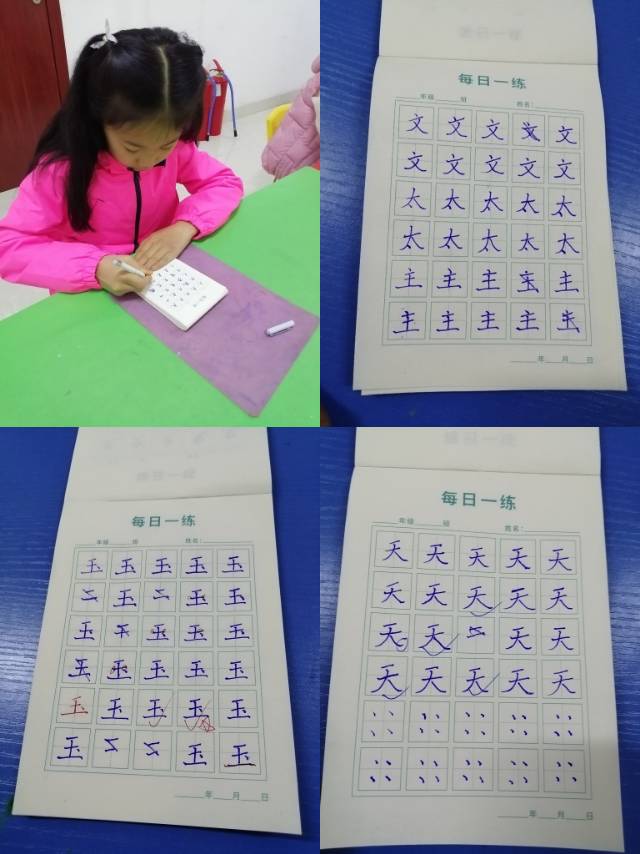 每日一练
年级 班 姓名:
文 文 文 文 文
文 文 文 文 文
太 太 太 太 太
太 太 太 太 太
主 主 主 主 主
主 主 主 主
年 月 日
每日一练
年级 班 姓名:
玉 玉 玉 玉 玉
玉 玉 玉
玉 玉 玉 玉
玉 玉 玉 玉 玉
玉 玉 玉 玉 玉
玉 玉 玉
年 月 日
每日一练
年级 班 姓名:
天 天 天 天 天
天 天 天 天 天
天 天 天 天
天 天 天 天 天
年 月 日